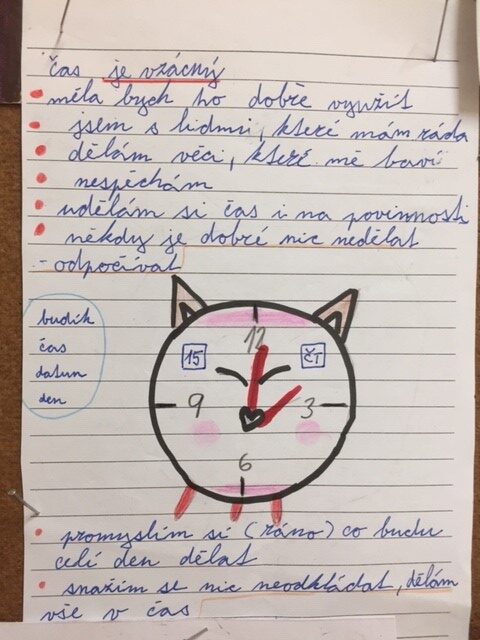 čas je vzácný
měla bych ho dobře využít
jsem s lidmi, které mám ráda
dělám věci, které mě baví
nespěchám
udělám si čas i na povinnosti
někdy je dobré nic nedělat
- odpočívat
budík
čas
datum
den
12
15
ČT
9
3
6
promyslím si (ráno) co budu
celí den dělat
snažím se nic neodkládat, dělám
vše v čas